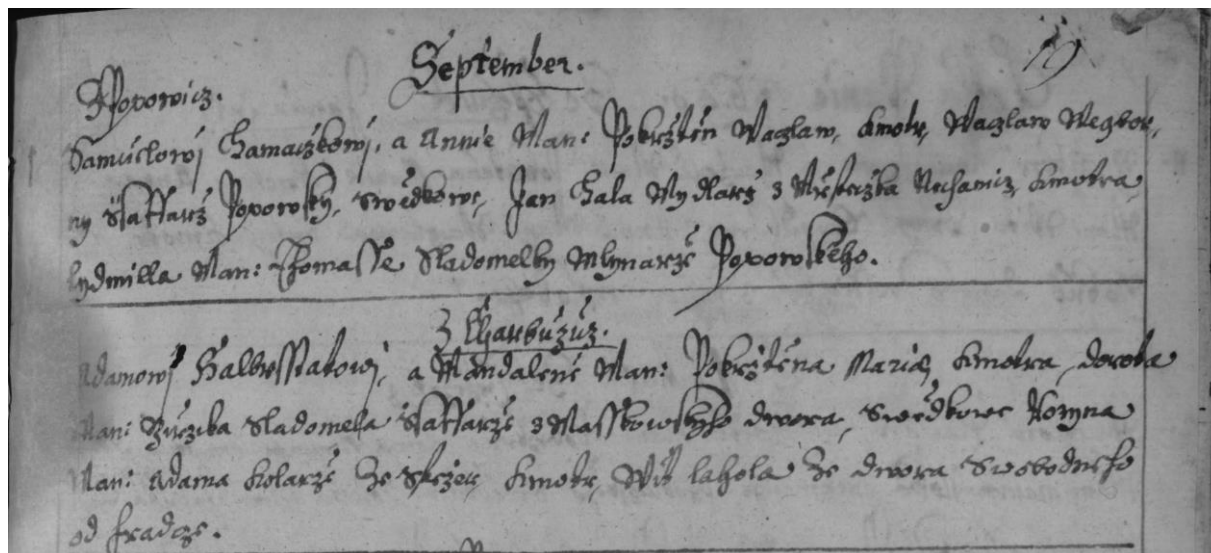 September. 19
Z Popowicz.
Samuelowj Hamaczkowj, a Annie Man: Pokrztěn Waczlaw, kmotr, Waczlaw Wegbor,
ny Ssaffarz Popowsky, Swědkowe, Jan Hala Mydlarz z Městeczka Nechanicz, kmotra
Lydmilla Man: Thomasse Sladomelky Mlynarze Popowskeho.
Z Charbuzicz.
Adamowj Halbrsstatowj, a Mandaleně Man: Pokrztěna Maria, kmotra, dorota
Man: Sladomela Ssaffarze z Masskowskyho dwora, Swědkowe
Man: Adama kolarze ze kmotr, Wit lahola ze dwora Swobodneho
od hradcze.